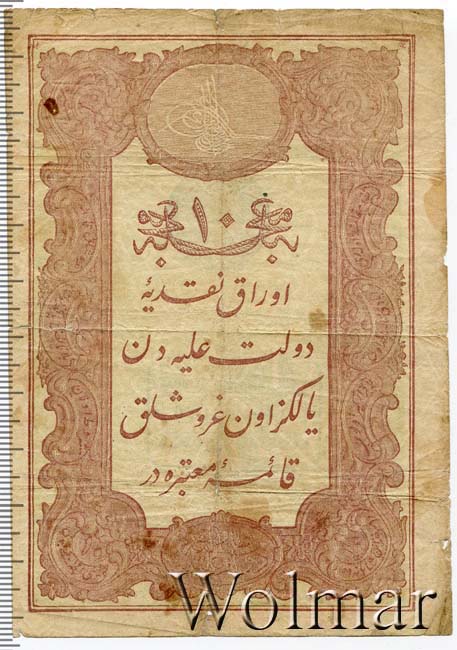 ١٠
اوراق نقدیهٔ
دولت علیه دن
یالکز اون غروشلق
قائمهٔ معتبره در
Wolmar